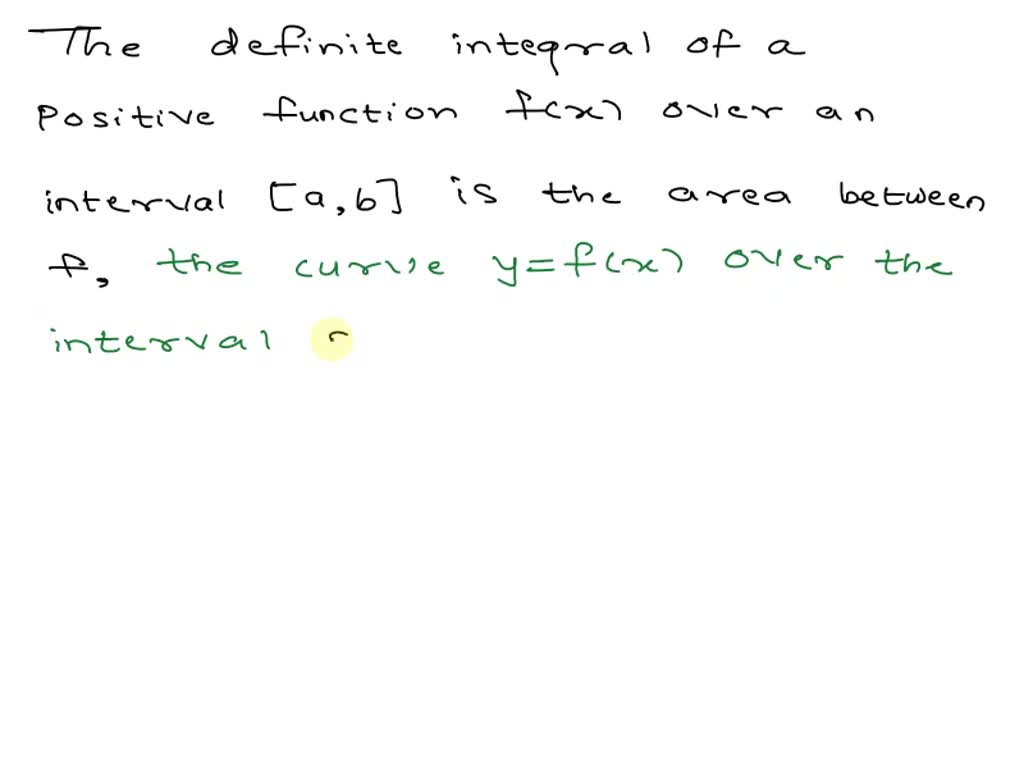 The definite integral of a
positive function f(x) over an
interval [a,b] is the area between
f, the curve y=f(x) over the
interval